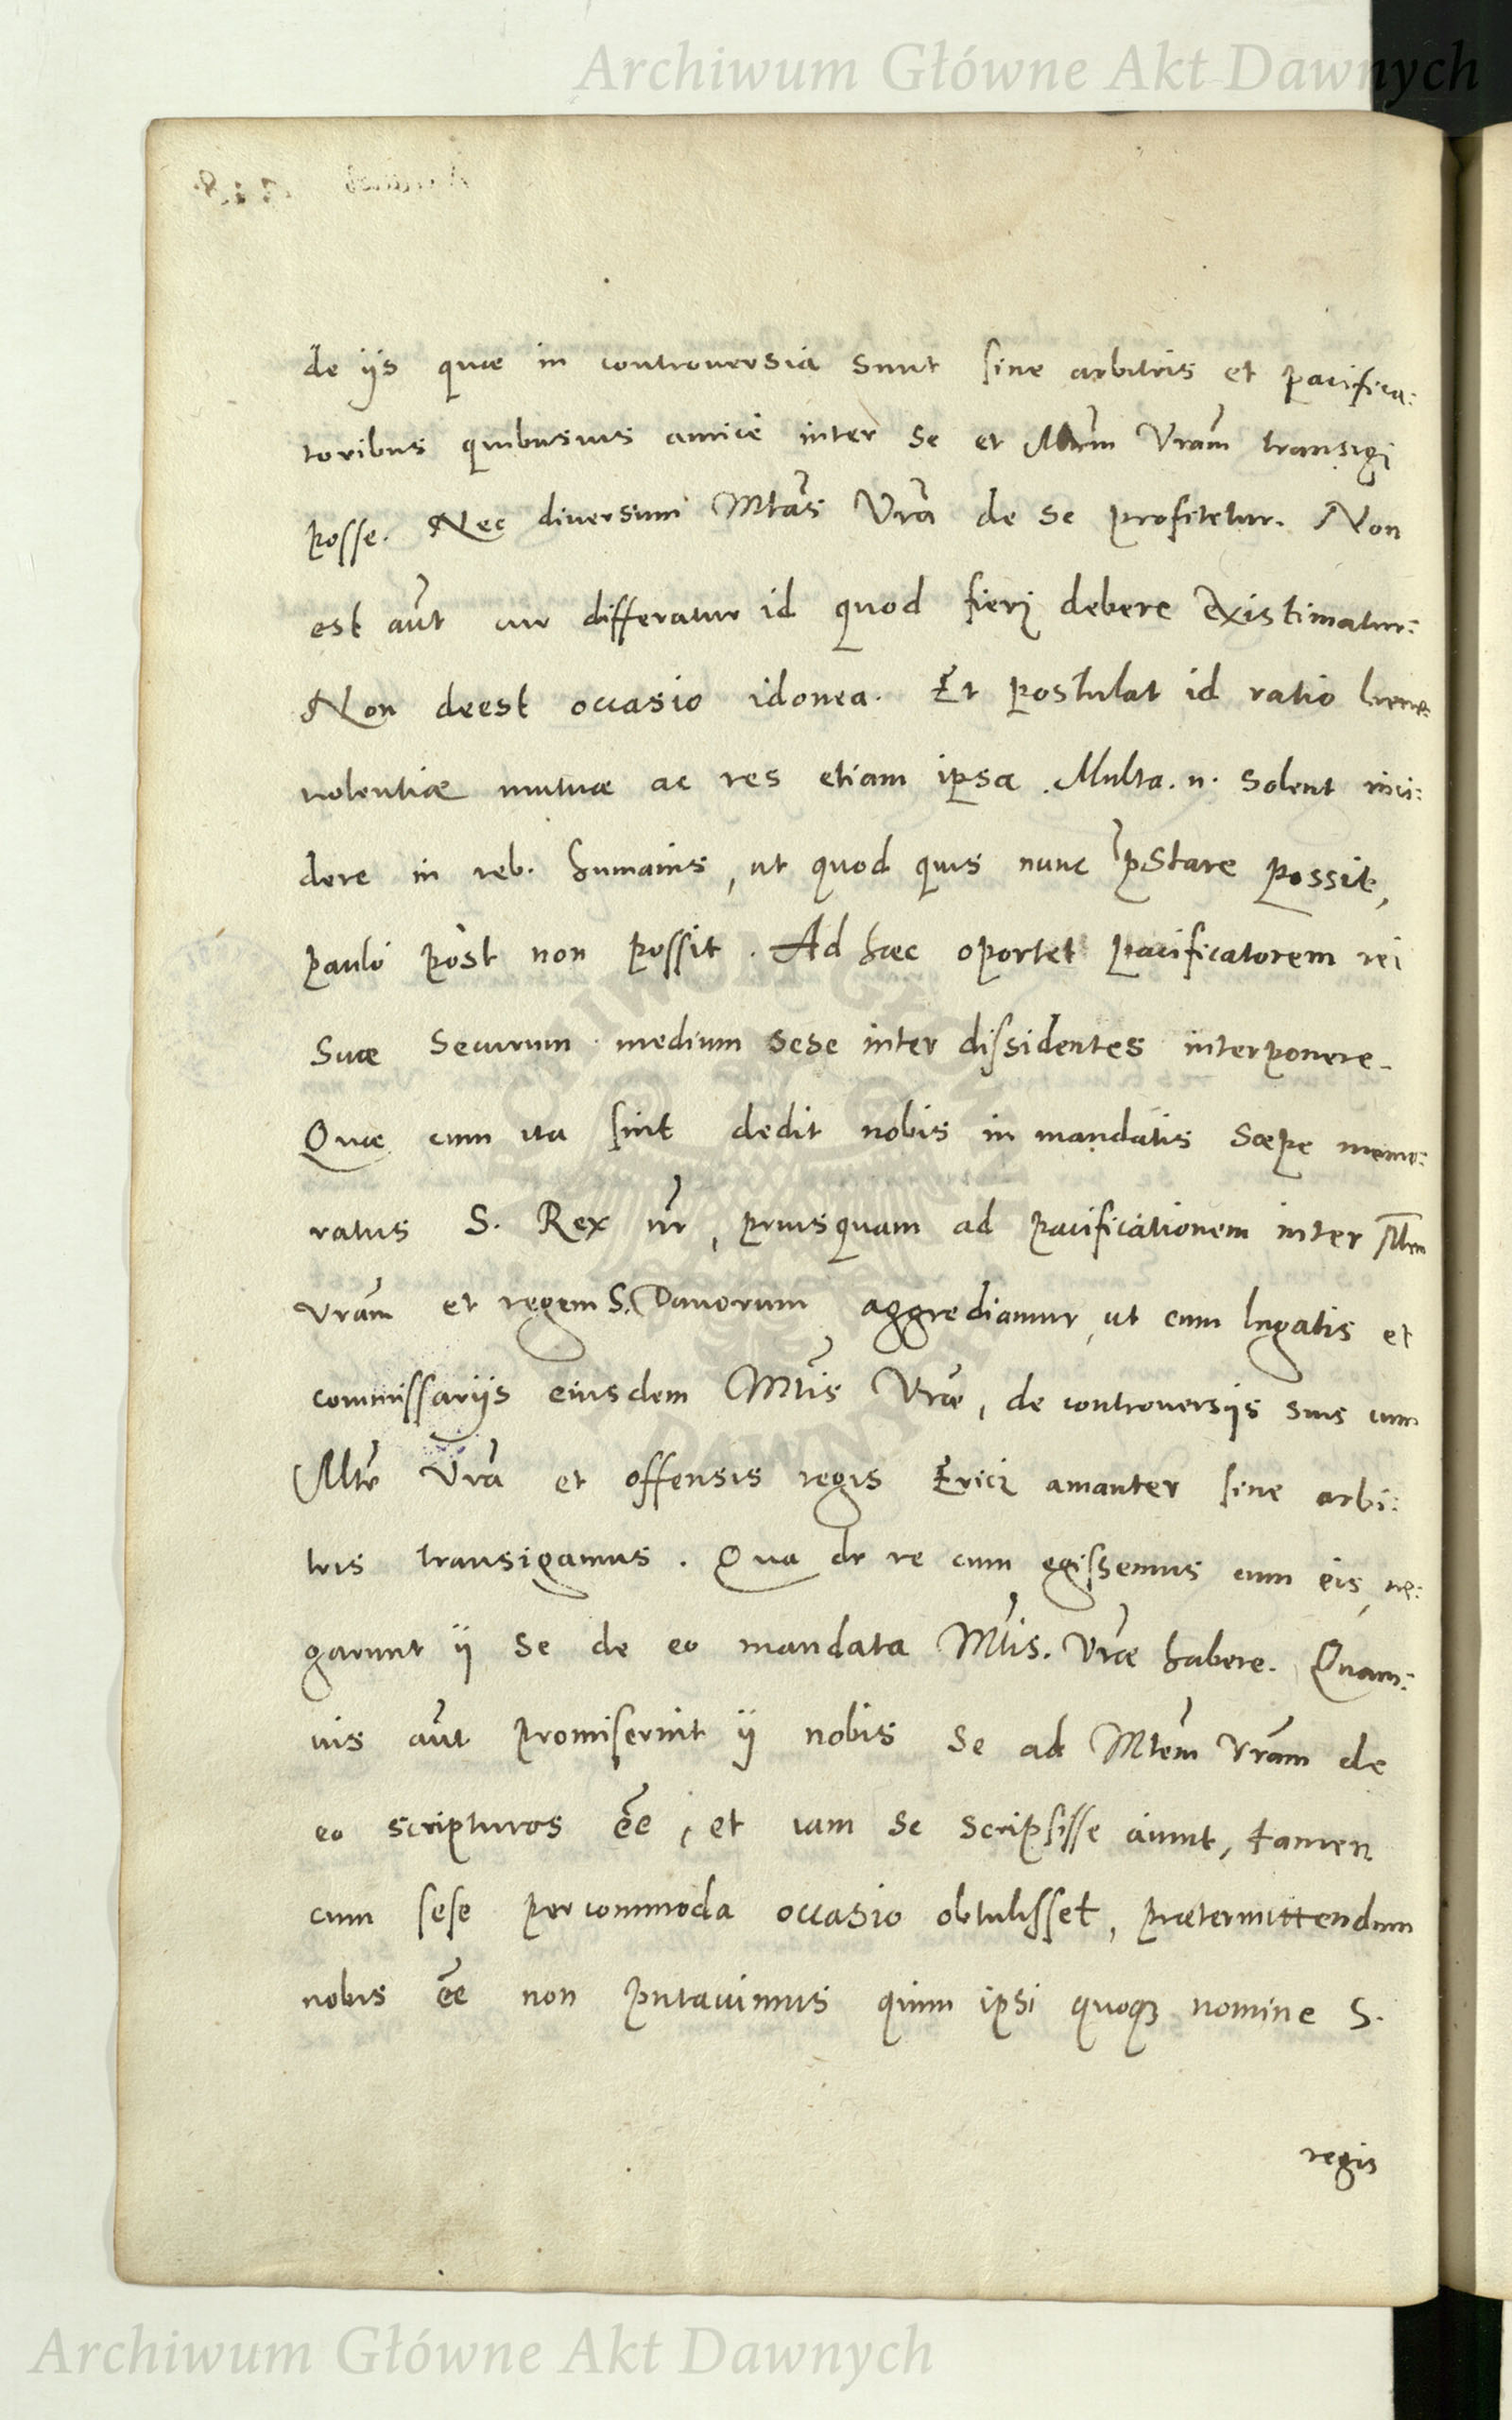 Archiwum Główne Akt Dawnych
de ijs quæ in controuersia sunt sine arbitris et pacifica:
toribus quibusuis amicè inter se et Mtem Vram transigi
posse. Nec diuersum Mtas Vra de se profitetur. Non
est aut cur differatur id quod fieri debere existimatur:
Non deest occasio idonea. Et postulat id ratio bene:
uolentiæ mutuæ ac res etiam ipsa. Multa .n. solent inci:
dere in reb. humanis, ut quod quis nunc pstare possit,
paulò pòst non possit. Ad hæc oportet pacificatorem rei
suæ securum medium sese inter dissidentes interponere.
Quæ cum ita sint dedit nobis in mandatis sæpe memo:
ratus S. Rex nr, priusquam ad pacificationem inter Mtem
Vram et regem S. Danorum aggrediamur, ut cum legatis et
commissarijs eiusdem Mtis Vræ, de controuersijs suis cum
Mte Vra et offensis regis Erici amanter sine arbi:
tris transigamus. Qua de re cum egissemus cum eis, ne:
garunt ij se de eo mandata Mtis. Vræ habere. Quam:
uis aut promiserint ij nobis se ad Mtem Vram de
eo scripturos ee, et iam se scripsisse aiunt, tamen
cum sese percommoda occasio obtulisset, prætermittendum
nobis ee non putauimus quin ipsi quoq; nomine S.
regis
ARCHIWUM GŁÓWNE AKT DAWNYCH
Archiwum Główne Akt Dawnych